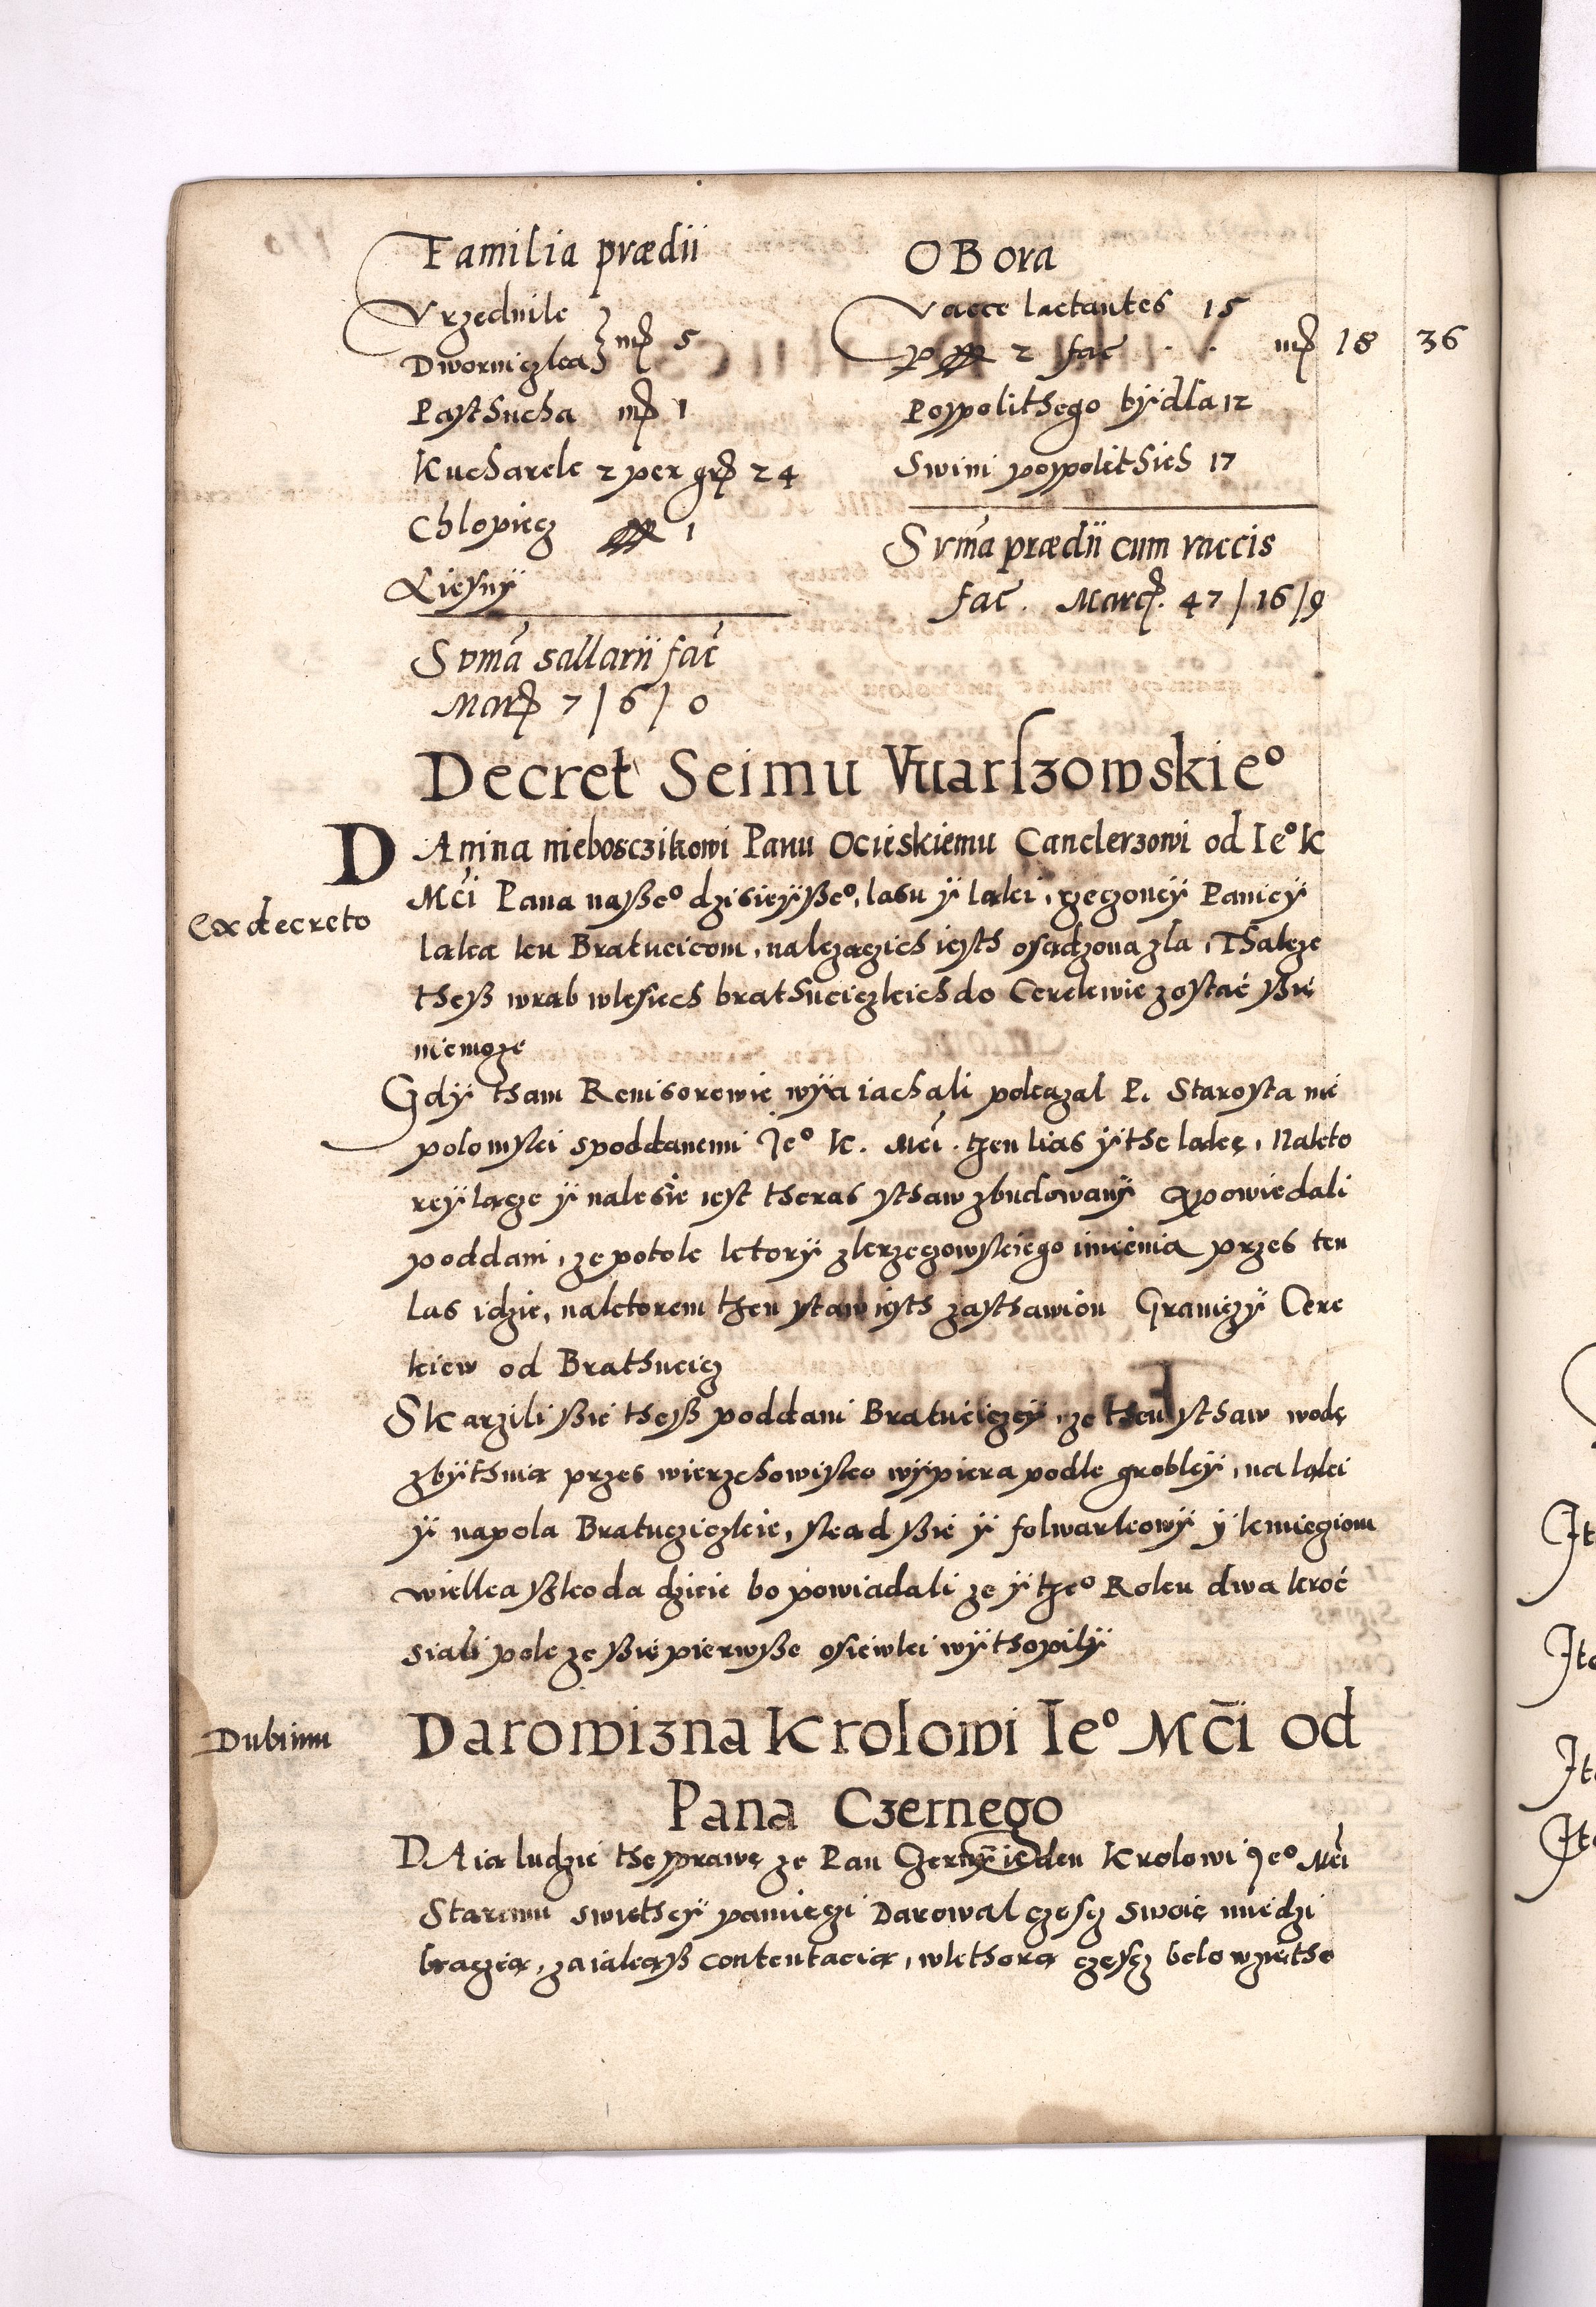 Familia prædii
Vrzednik
Dworniczka mrͣ 5
Pasthucha mrͣ 1
Kucharek 2 per grͣ 24
Chlopiecz 1
Liesny
Suma sallarii fac̃
Marͣ 7 / 6 / 0
OBora
Vacce lactantes 15
2 fac̃ . . mrͣ 18 36
Pospolithego bÿdla 12
Swini pospolithich 17
Suma prædii cum vaccis
fac̃. Marcͣ. 47 / 16 / 9
Decret Seimu Vuarszowskieº
DAnina niebosczikowi Panu Ocieskiemu Canclerzowi od Ieº K
Mći Pana naßeº dzisieÿßeº, lasu ÿ laki, rzeczoneÿ Panieÿ
ex decreto
laka ku Bratucicom, nalezaczich iesth osadzona zla, Thakze
theß wrab wlesiech brathuciczkich do Cerekwie zostać ßie
niemoze
Gdÿ tham Remisorowie wÿia iachali pokazal P. Starosta nie
polomski spoddanemi Jeº K. Mći. then lias ÿ the lakę, Nakto
reÿ lącze ÿ nalesie iest theras sthaw zbudowanÿ powiedali
poddani, ze potok ktorÿ zkrzeczowskiego imienia przes ten
las idzie, naktorem then staw iesth zasthawion Graniczÿ Cere
kiew od Brathucicz
Skarzili ßie theß poddani Bratuciczcÿ, ze then sthaw wodę
zbÿthnia przes wierzchowisko wÿpiera podle grobleÿ, na laki
ÿ napola Bratucziczkie, skad ßie ÿ folwarkowÿ ÿ kmieciom
wielka ßkoda dzieie bo powiadali ze ÿ theº Roku dwa kroć
siali pole ze ßie pierwße osiewki wÿthopilÿ
Dubium
Darowizna Krolowi Ieº Mći od
Pana Czernego
DAia ludzie the sprawę ze Pan Czernÿ ieden Krolowi Jeº Mći
Staremu swietheÿ pamieczi Darowal częscz swoię miedzi
braczia, za iakąß contentacia, wkthora częscz belo wzietho